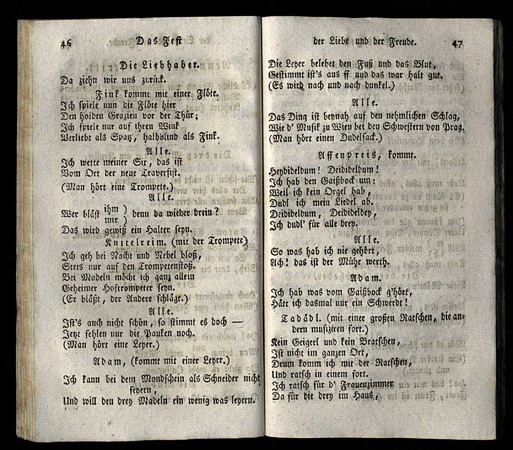 46 Das Fest
Die Liebhaber.
Da ziehn wir uns zurück.
Fink komme mit einer Flöte.
Ich spiele nun die Flöte hier
Den holden Grazien vor der Thür;
Ich spiele nur auf ihren Wink
Verliebt als Spatz, halbblind als Fink.
Alle.
Ich wette meiner Six, das ist
Vom Ort der neue Traversist.
(Man hört eine Trompete.)
Alle.
Wer bläst ihm mir denn da wieder drein?
Das wird gewiß ein Halter seyn.
Knittelreim. (mit der Trompete)
Ich geh bei Nacht und Nebel bloß,
Stets nur auf den Trompetenstoß.
Bei Madeln möcht ich ganz allein
Geheimer Hoftrompeter seyn.
(Er bläst, der Andere schlägt.)
Alle.
Ist's auch nicht schön, so stimmt es doch —
Jetzt fehlen nur die Pauken noch.
(Man hört eine Leyer.)
Adam, (kommt mit einer Leyer.)
Ich kann bei dem Mondschein als Schneider nicht
feyern,
Und will den drey Madeln ein wenig was leyern.
der Liebe und der Freude. 47
Die Leyer belebet den Fuß und das Blut,
Gestimmt ist's aus ff und das war halt gut.
(Es wird nach und nach dunkel.)
Alle.
Das Ding ist beynah auf den nehmlichen Schlag,
Wie d' Musik zu Wien bei den Schwestern von Prag.
(Man hört einen Dudelsack.)
Affenpreis, komme.
Heydideldum! Deidideldum!
Ich hab den Gaißbock um:
Weil ich kein Orgel hab,
Dudl ich mein Liedel ab.
Deidideldum, Deidideldey,
Ich dudl' für alle drey.
Alle.
So was hab ich nie gehört,
Ach! das ist der Mühe werth.
Adam.
Ich hab was vom Gaißbock g'hört,
Hätt ich dasmal nur ein Schwerdt!
Tadädl. (mit einer großen Ratschen, die an-
dern musiziren fort.)
Kein Geigerl und kein Bratschen,
Ist nicht im ganzen Ort,
Drum komm ich mit der Ratschen,
Und ratsch in einem fort.
Ich ratsch für d' Frauenzimmer
Da für die drey im Haus,